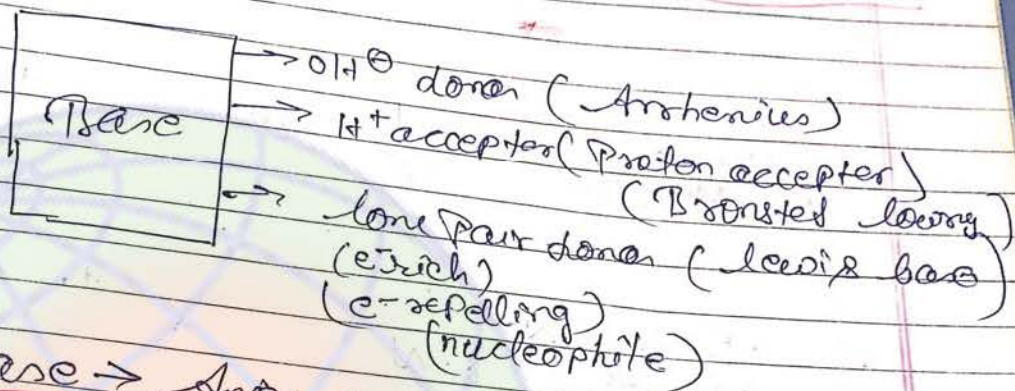 → OH⊖ donor (Arrhenius)
Base
→ H⁺ accepter (Proton accepter)
(Bronsted lowry)
→ lone Pair donor (lewis base)
(e⁻ rich)
(e- repelling)
(nucleophile)
ase →